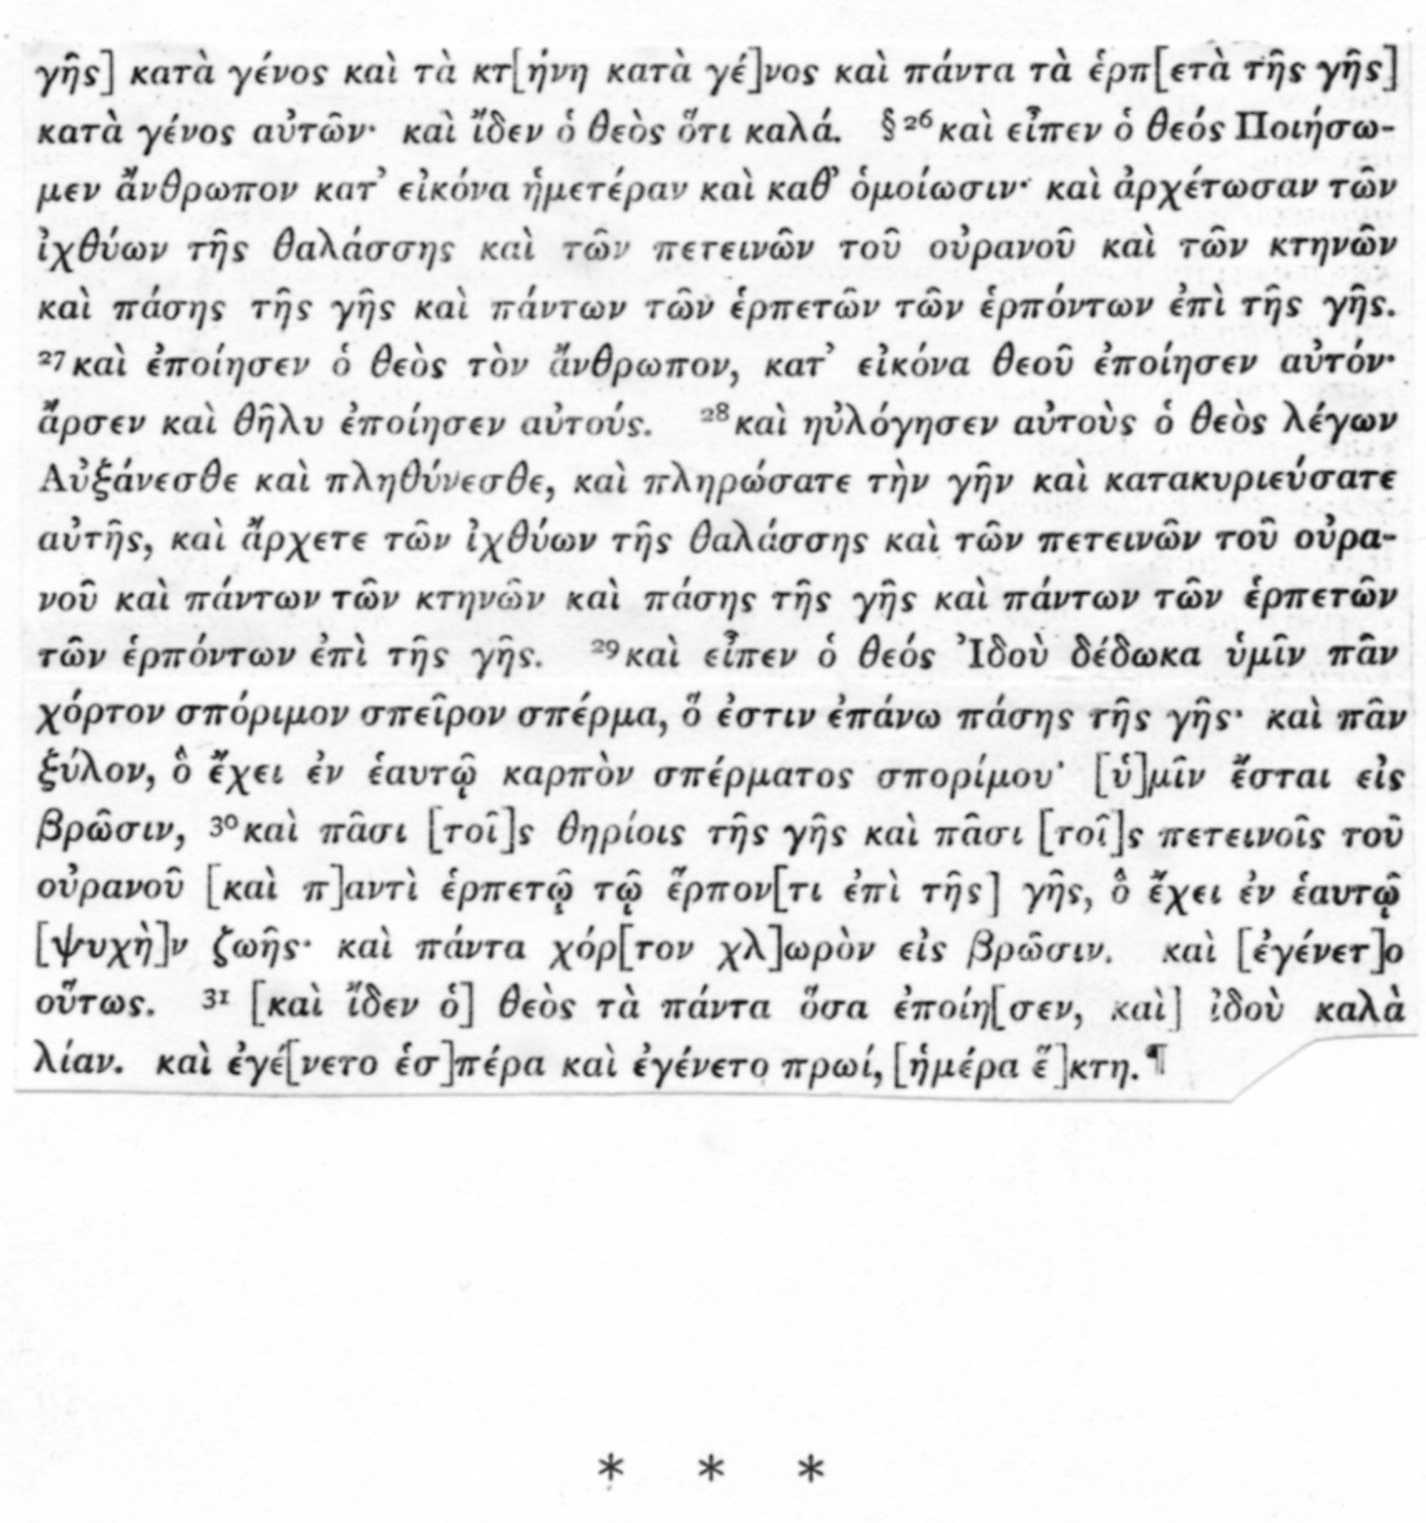 γῆς] κατὰ γένος καὶ τὰ κτ[ήνη κατὰ γέ]νος καὶ πάντα τὰ ἑρπ[ετὰ τῆς γῆς]
κατὰ γένος αὐτῶν· καὶ ἴδεν ὁ θεὸς ὅτι καλά. § ²⁶καὶ εἶπεν ὁ θεός Ποιήσω-
μεν ἄνθρωπον κατ’ εἰκόνα ἡμετέραν καὶ καθ’ ὁμοίωσιν· καὶ ἀρχέτωσαν τῶν
ἰχθύων τῆς θαλάσσης καὶ τῶν πετεινῶν τοῦ οὐρανοῦ καὶ τῶν κτηνῶν
καὶ πάσης τῆς γῆς καὶ πάντων τῶν ἑρπετῶν τῶν ἑρπόντων ἐπὶ τῆς γῆς.
²⁷καὶ ἐποίησεν ὁ θεὸς τὸν ἄνθρωπον, κατ’ εἰκόνα θεοῦ ἐποίησεν αὐτόν·
ἄρσεν καὶ θῆλυ ἐποίησεν αὐτούς. ²⁸καὶ ηὐλόγησεν αὐτοὺς ὁ θεὸς λέγων
Αὐξάνεσθε καὶ πληθύνεσθε, καὶ πληρώσατε τὴν γῆν καὶ κατακυριεύσατε
αὐτῆς, καὶ ἄρχετε τῶν ἰχθύων τῆς θαλάσσης καὶ τῶν πετεινῶν τοῦ οὐρα-
νοῦ καὶ πάντων τῶν κτηνῶν καὶ πάσης τῆς γῆς καὶ πάντων τῶν ἑρπετῶν
τῶν ἑρπόντων ἐπὶ τῆς γῆς. ²⁹καὶ εἶπεν ὁ θεός Ἰδοὺ δέδωκα ὑμῖν πᾶν
χόρτον σπόριμον σπεῖρον σπέρμα, ὅ ἐστιν ἐπάνω πάσης τῆς γῆς· καὶ πᾶν
ξύλον, ὃ ἔχει ἐν ἑαυτῷ καρπὸν σπέρματος σπορίμου· [ὑ]μῖν ἔσται εἰς
βρῶσιν, ³⁰καὶ πᾶσι [τοῖ]ς θηρίοις τῆς γῆς καὶ πᾶσι [τοῖ]ς πετεινοῖς τοῦ
οὐρανοῦ [καὶ π]αντὶ ἑρπετῷ τῷ ἕρπον[τι ἐπὶ τῆς] γῆς, ὃ ἔχει ἐν ἑαυτῷ
[ψυχὴ]ν ζωῆς· καὶ πάντα χόρ[τον χλ]ωρὸν εἰς βρῶσιν. καὶ [ἐγένετ]ο
οὕτως. ³¹ [καὶ ἴδεν ὁ] θεὸς τὰ πάντα ὅσα ἐποίη[σεν, καὶ] ἰδοὺ καλὰ
λίαν. καὶ ἐγέ[νετο ἑσ]πέρα καὶ ἐγένετο πρωί, [ἡμέρα ἕ]κτη.¶
* * *